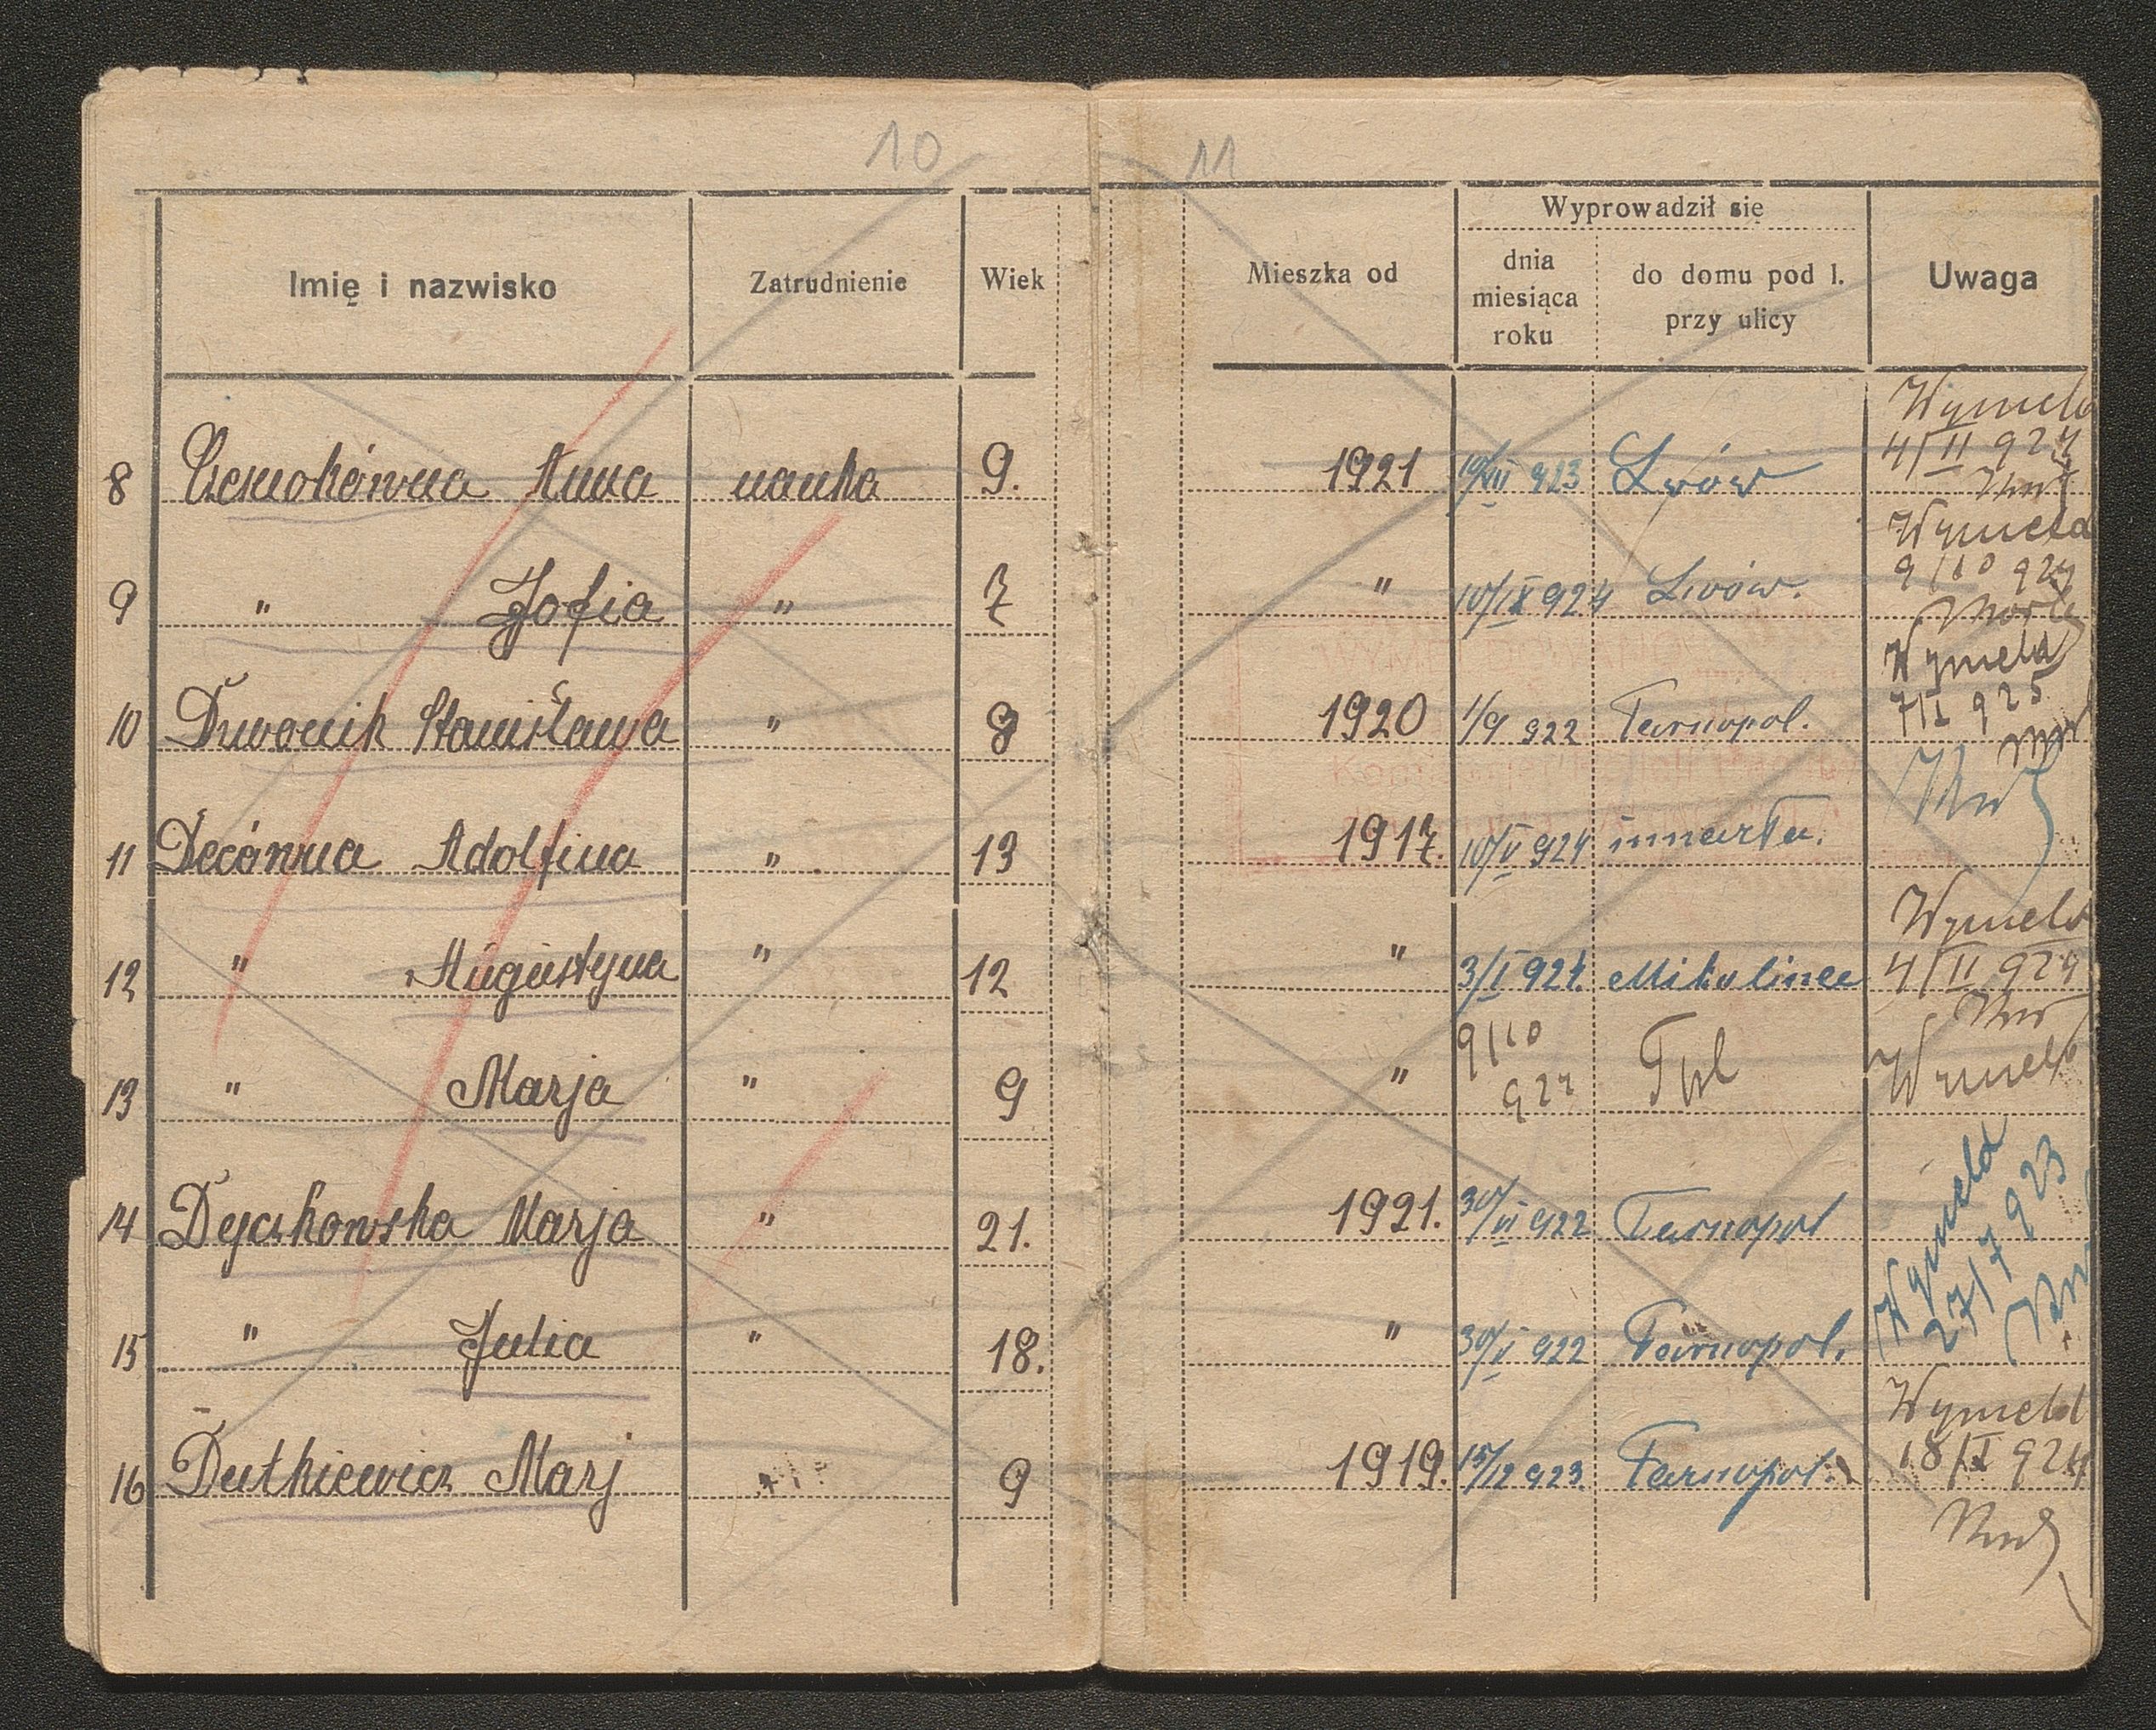 10
11
Imię i nazwisko
Zatrudnienie
Wiek
Mieszka od
Wyprowadził się
dnia miesiąca roku
do domu pod l. przy ulicy
Uwaga
8 Anna nauka 9. 1921 923 Lwów Wymeld 4/II 924
9 " Zofia " 7 " 10/IX 924 Lwów. Wymeld 9/10 924
10 Dzwonik Stanisława " 8 1920 1/9 922 Tarnopol. Wymeld 7/I 925
11 Decówna Adolfina " 13 1917. 10/V 924 umarła.
12 " Augustyna " 12 " 3/I 924. Mikulince Wymeld 4/II 924
13 " Marja " 9 " 9/10 924 Tpl Wymeld
14 Dyczkowska Marja " 21. 1921. 30/VI 922 Tarnopol Wymeld 27/7 923
15 " Julia " 18. " 30/V 922 Tarnopol.
16 Dutkiewicz Marj " 9 1919. 15/12 923. Tarnopol. Wymeld 18/I 924
WYMELDOWANO